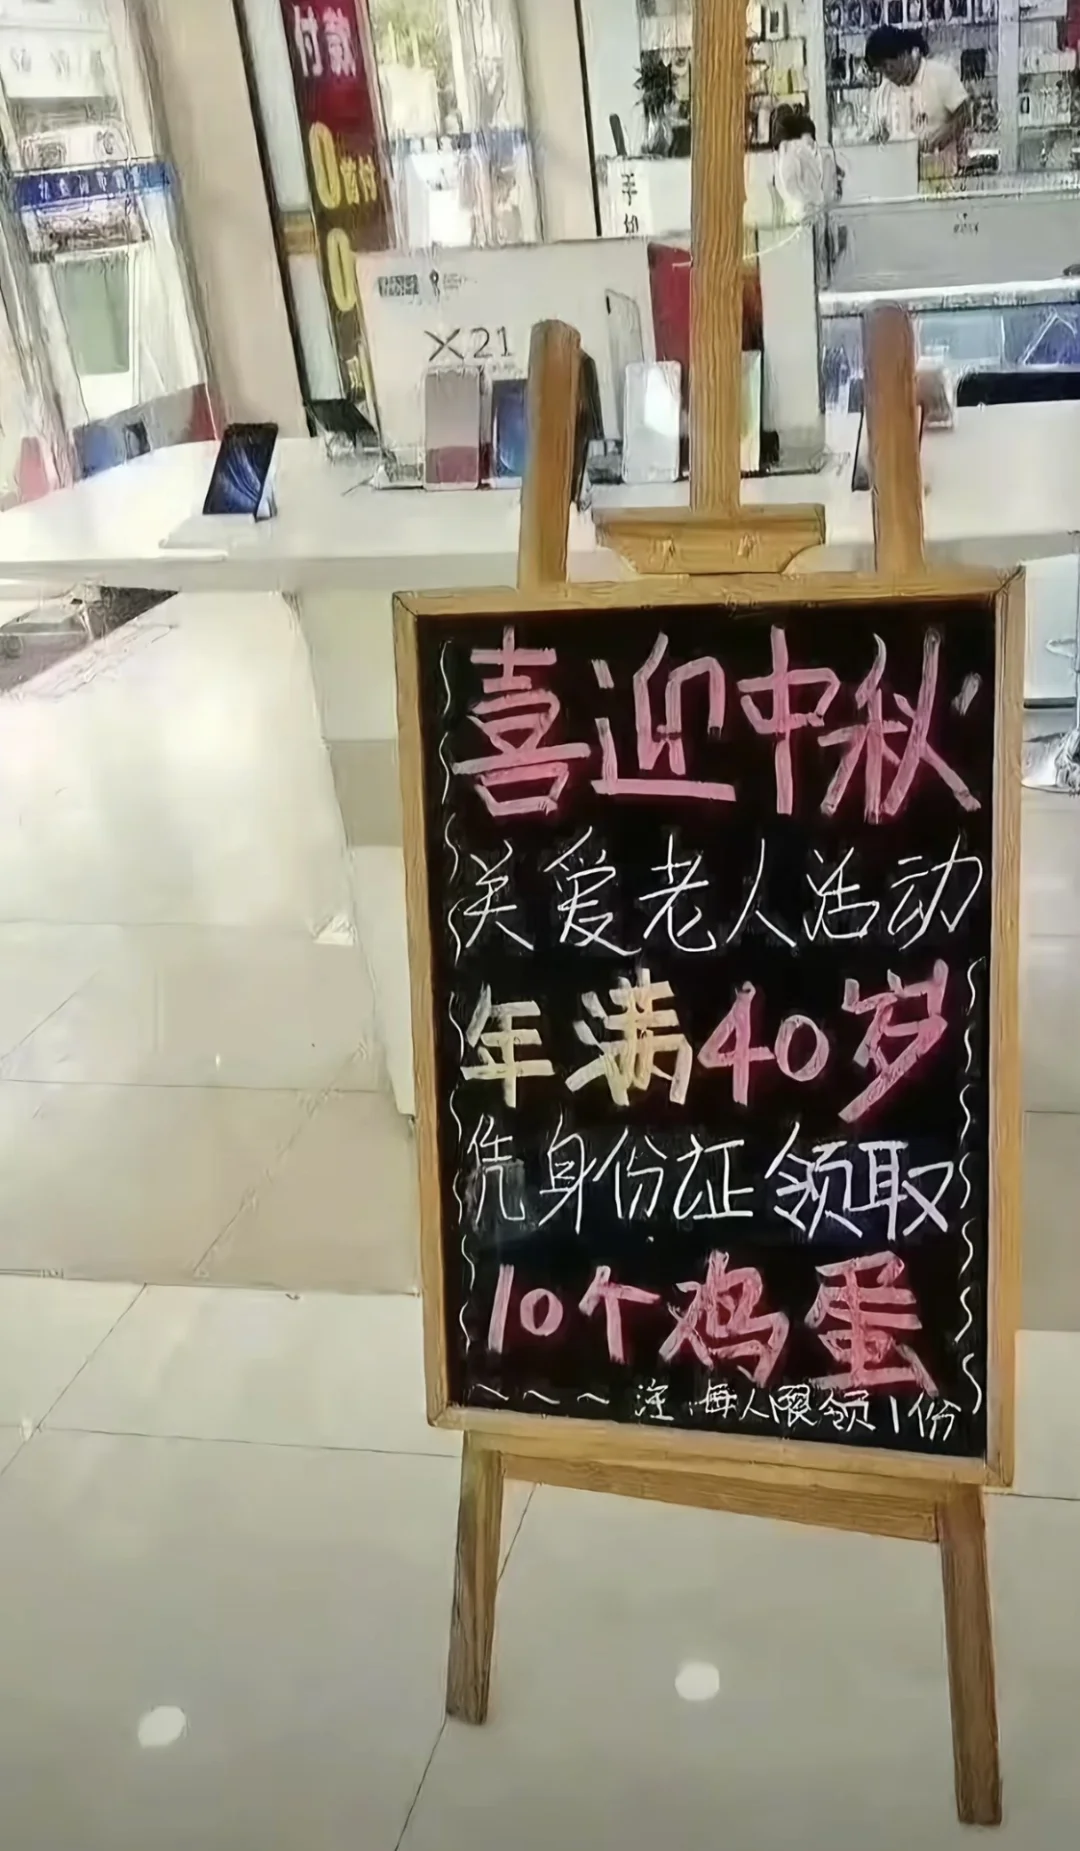 付款
0首付
0
手机
X21
喜迎中秋
关爱老人活动
年满40岁
凭身份证领取
10个鸡蛋
～～～注:每人限领1份